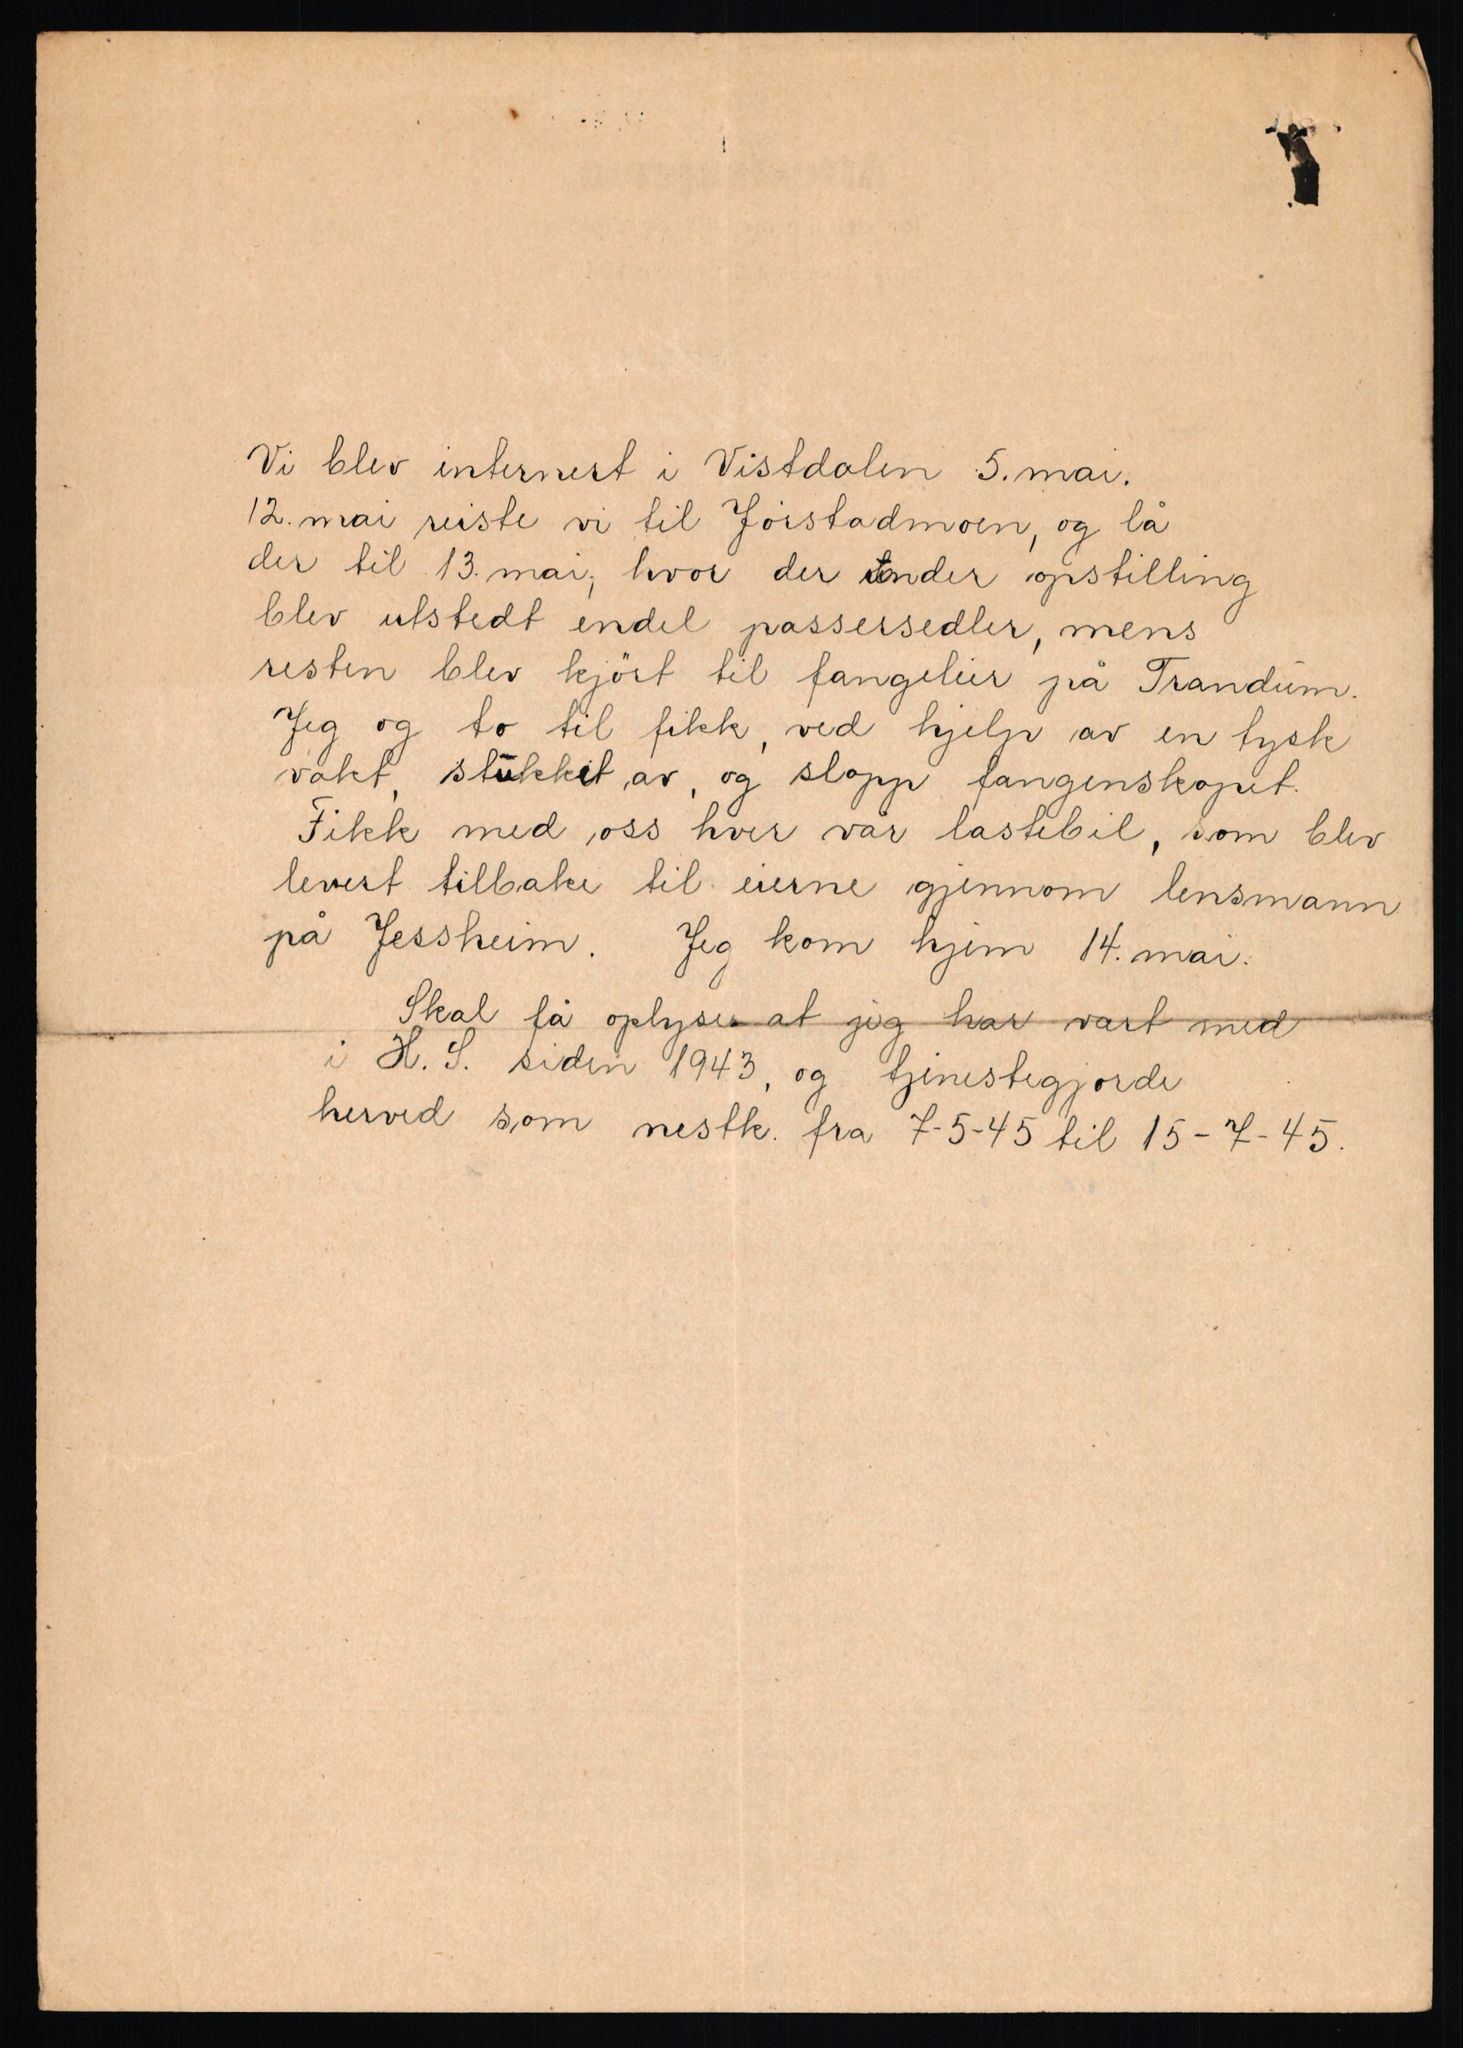 Vi blev internert i Vistdalen 5. mai.
12. mai reiste vi til Jörstadmoen, og lå
der til 13. mai, hvor der under opstilling
blev utstedt endel passersedler, mens
resten blev kjört til fangeleir på Trandum.
Jeg og to til fikk, ved hjelp av en tysk
vakt, stukket av, og slapp fangenskapet.
Fikk med oss hver vår lastebil, som blev
levert tilbake til eierne gjennom lensmann
på Jessheim. Jeg kom hjem 14. mai.
Skal få oplyse at jeg har vart med
i H. S. siden 1943, og tjenestegjorde
herved som nestk. fra 7-5-45 til 15-7-45.